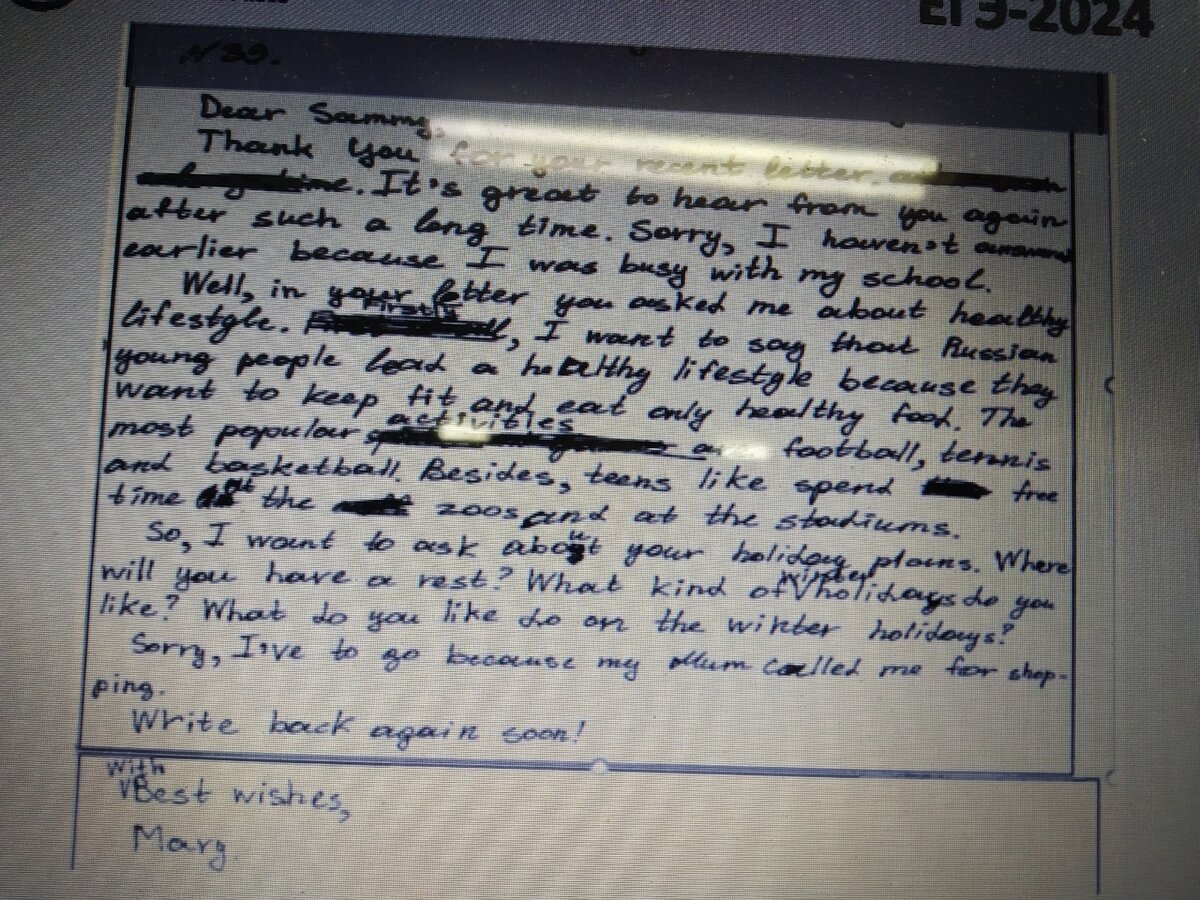 ЕГЭ-2024
N 39.
Dear Sammy,
Thank you for your recent letter.
time. It's great to hear from you again
after such a long time. Sorry, I haven't
earlier because I was busy with my school.
Well, in your letter you asked me about healthy
lifestyle. Firstly, I want to say that Russian
young people lead a healthy lifestyle because they
want to keep fit and eat only healthy food. The
most popular activities are football, tennis
and basketball. Besides, teens like spend free
time at the zoos and at the stadiums.
So, I want to ask about your holiday plans. Where
will you have a rest? What kind of winter holidays do you
like? What do you like do on the winter holidays?
Sorry, I've to go because my Mum called me for shop-
ping.
Write back again soon!
With Best wishes,
Mary.